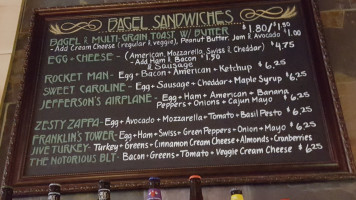 BAGEL SANDWICHES
BAGEL & MULTI-GRAIN TOAST w/ BUTTER $1.80/
+ Add Cream Cheese (regular & veggie), Peanut Butter, Jam & Avocado $1.00
EGG + CHEESE - (American, Mozzarella, Swiss & Cheddar) $4.75
+ Add Ham & Bacon $1.50
& Sausage
ROCKET MAN - Egg + Bacon + American + Ketchup $6.25
SWEET CAROLINE - Egg + Sausage + Cheddar + Maple Syrup $6.25
JEFFERSON'S AIRPLANE - Egg + Ham + American + Banana
Peppers + Onions + Cajun Mayo $6.25
ZESTY ZAPPA - Egg + Avocado + Mozzarella + Tomato + Basil Pesto $6.25
FRANKLIN'S TOWER - Egg + Ham + Swiss + Green Peppers + Onion + Mayo $6.25
JIVE TURKEY - Turkey + Greens + Cinnamon Cream Cheese + Almonds + Cranberries
THE NOTORIOUS BLT - Bacon + Greens + Tomato + Veggie Cream Cheese $6.25